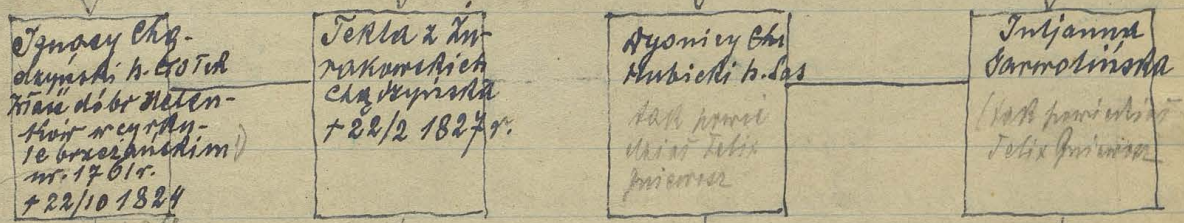 Ignacy Chą-
dzyński h. Ciołek
właśc dóbr Helen-
ków w cyrku-
le brzeżańskim
ur. 1761 r.
+ 22/10 1824
Tekla z Żu-
rakowskich
Chądzyńska
+ 22/2 1827 r.
Dyonizy Chł
Hubicki h. Sas
tak powie
dział Felix
Gniewosz
Juljanna
Jarwolińska
(tak powiedział
Felix Gniewosz